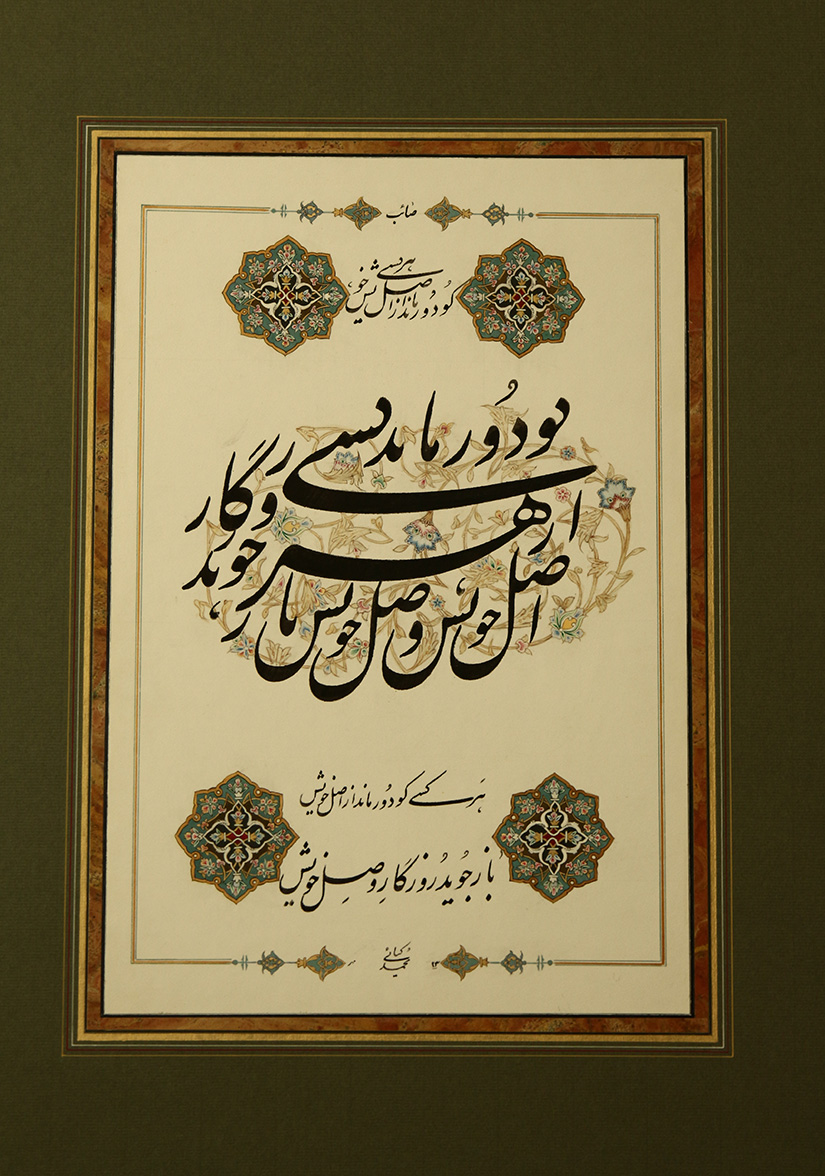 صائب
هر کسی
کو دور ماند از اصل خویش
کو دور ماند کسی
از هر جوید روزگار
اصل خویش وصل خویش باز
هر کسی کو دور ماند از اصل خویش
باز جوید روزگار وصل خویش